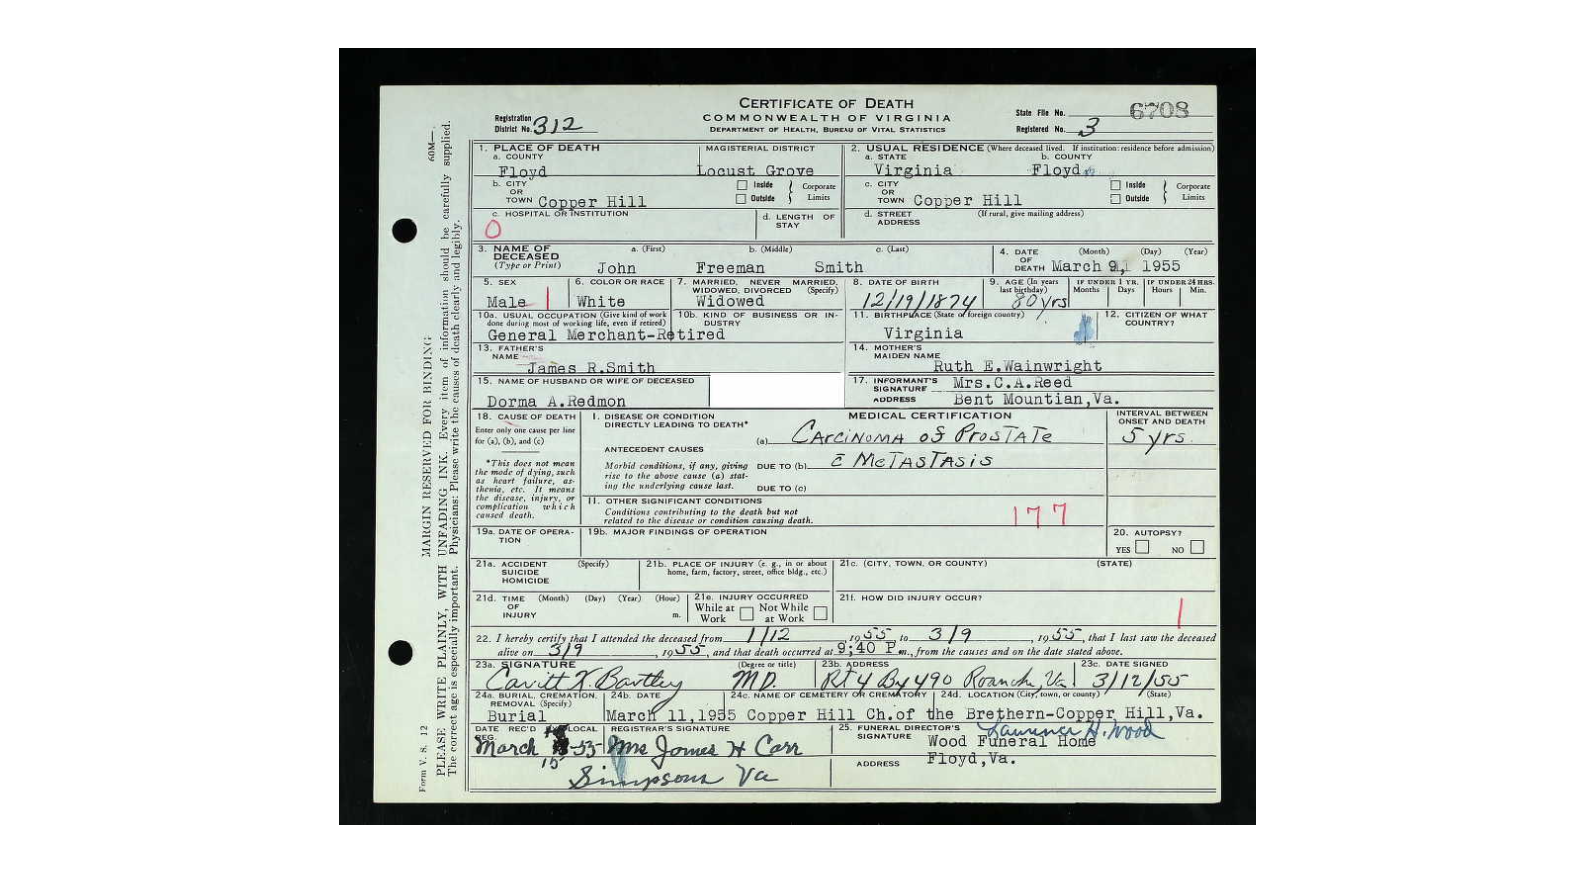 CERTIFICATE OF DEATH
COMMONWEALTH OF VIRGINIA
DEPARTMENT OF HEALTH, BUREAU OF VITAL STATISTICS
Registration District No. 312
State File No. 6708
Registered No. 3
1. PLACE OF DEATH
a. COUNTY
Floyd
MAGISTERIAL DISTRICT
Locust Grove
b. CITY OR TOWN Copper Hill
Inside Outside Corporate Limits
c. HOSPITAL OR INSTITUTION
0
d. LENGTH OF STAY
2. USUAL RESIDENCE (Where deceased lived. If institution: residence before admission)
a. STATE
Virginia
b. COUNTY
Floyd
c. CITY OR TOWN Copper Hill
Inside Outside Corporate Limits
d. STREET ADDRESS (If rural, give mailing address)
3. NAME OF DECEASED (Type or Print)
a. (First) b. (Middle) c. (Last)
John Freeman Smith
4. DATE OF DEATH (Month) (Day) (Year)
March 9, 1955
5. SEX
Male 1
6. COLOR OR RACE
White
7. MARRIED, NEVER MARRIED, WIDOWED, DIVORCED (Specify)
Widowed
8. DATE OF BIRTH
12/19/1874
9. AGE (In years last birthday)
80 yrs
IF UNDER 1 YR. Months Days
IF UNDER 24 HRS. Hours Min.
10a. USUAL OCCUPATION (Give kind of work done during most of working life, even if retired)
10b. KIND OF BUSINESS OR INDUSTRY
General Merchant-Retired
11. BIRTHPLACE (State or foreign country)
Virginia
12. CITIZEN OF WHAT COUNTRY?
13. FATHER'S NAME
James R.Smith
14. MOTHER'S MAIDEN NAME
Ruth E.Wainwright
15. NAME OF HUSBAND OR WIFE OF DECEASED
Dorma A.Redmon
17. INFORMANT'S SIGNATURE Mrs.C.A.Reed
ADDRESS Bent Mountian,Va.
18. CAUSE OF DEATH
Enter only one cause per line for (a), (b), and (c)
*This does not mean the mode of dying, such as heart failure, asthenia, etc. It means the disease, injury, or complication which caused death.
MEDICAL CERTIFICATION
INTERVAL BETWEEN ONSET AND DEATH
I. DISEASE OR CONDITION DIRECTLY LEADING TO DEATH*
(a) Carcinoma of Prostate
5 yrs.
ANTECEDENT CAUSES
Morbid conditions, if any, giving rise to the above cause (a) stating the underlying cause last.
DUE TO (b) c̄ Metastasis
DUE TO (c)
II. OTHER SIGNIFICANT CONDITIONS
Conditions contributing to the death but not related to the disease or condition causing death.
177
19a. DATE OF OPERATION
19b. MAJOR FINDINGS OF OPERATION
20. AUTOPSY?
YES NO
21a. ACCIDENT SUICIDE HOMICIDE (Specify)
21b. PLACE OF INJURY (e. g., in or about home, farm, factory, street, office bldg., etc.)
21c. (CITY, TOWN, OR COUNTY) (STATE)
21d. TIME OF INJURY (Month) (Day) (Year) (Hour) m.
21e. INJURY OCCURRED
While at Work Not While at Work
21f. HOW DID INJURY OCCUR?
1
22. I hereby certify that I attended the deceased from 1/12, 1955, to 3/9, 1955, that I last saw the deceased
alive on 3/9, 1955, and that death occurred at 9:40 P m., from the causes and on the date stated above.
23a. SIGNATURE (Degree or title)
Bartley M.D.
23b. ADDRESS
Rt 4 Bx 490 Roanoke, Va
23c. DATE SIGNED
3/12/55
24a. BURIAL, CREMATION, REMOVAL (Specify)
Burial
24b. DATE
March 11,1955
24c. NAME OF CEMETERY OR CREMATORY
24d. LOCATION (City, town, or county) (State)
Copper Hill Ch.of the Brethern-Copper Hill,Va.
DATE REC'D LOCAL REG.
March 15-55
REGISTRAR'S SIGNATURE
Mrs James H Carr
Simpsons Va
25. FUNERAL DIRECTOR'S SIGNATURE
Lawrence H. Wood
Wood Funeral Home
ADDRESS Floyd,Va.
Form V. S. 12
60M—
MARGIN RESERVED FOR BINDING
PLEASE WRITE PLAINLY, WITH UNFADING INK. Every item of information should be carefully supplied.
The correct age is especially important. Physicians: Please write the causes of death clearly and legibly.